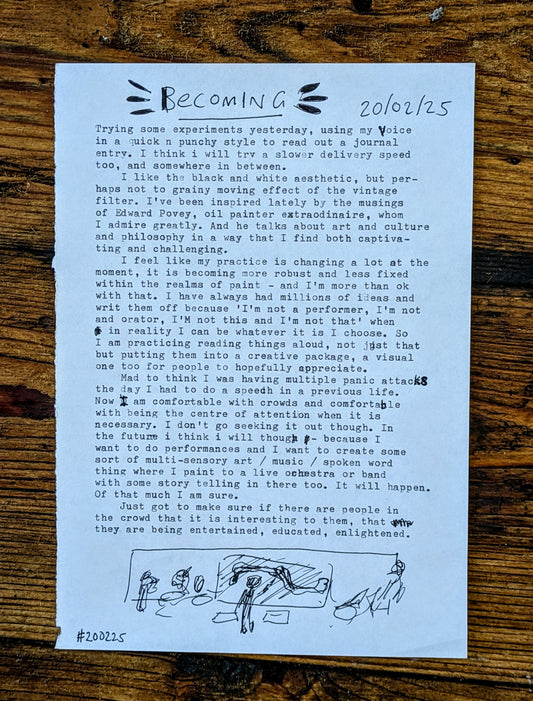 BECOMING
20/02/25
Trying some experiments yesterday, using my Voice
in a quick n punchy style to read out a journal
entry. I think i will try a slower delivery speed
too, and somewhere in between.
I like the black and white aesthetic, but per-
haps not to grainy moving effect of the vintage
filter. I've been inspired lately by the musings
of Edward Povey, oil painter extraodinaire, whom
I admire greatly. And he talks about art and culture
and philosophy in a way that I find both captiva-
ting and challenging.
I feel like my practice is changing a lot at the
moment, it is becoming more robust and less fixed
within the realms of paint - and I'm more than ok
with that. I have always had millions of ideas and
writ them off because 'I'm not a performer, I'm not
and orator, I'M not this and I'm not that' when
in reality I can be whatever it is I choose. So
I am practicing reading things aloud, not just that
but putting them into a creative package, a visual
one too for people to hopefully appreciate.
Mad to think I was having multiple panic attacks
the day I had to do a speech in a previous life.
Now I am comfortable with crowds and comfortable
with being the centre of attention when it is
necessary. I don't go seeking it out though. In
the future i think i will though - because I
want to do performances and I want to create some
sort of multi-sensory art / music / spoken word
thing where I paint to a live orchestra or band
with some story telling in there too. It will happen.
Of that much I am sure.
Just got to make sure if there are people in
the crowd that it is interesting to them, that
they are being entertained, educated, enlightened.
#200225